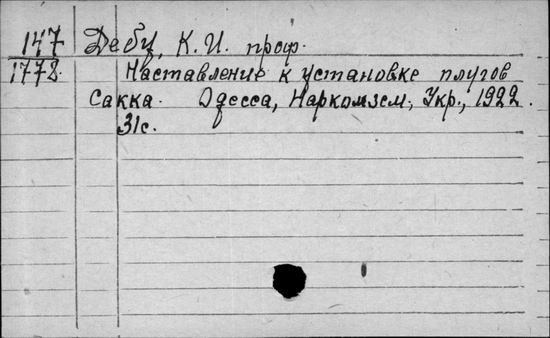 147 Дебу, К. И. проф.
1778. Наставление к установке плугов
Сакка. Одесса, Наркомзем, Укр., 1922.
31с.